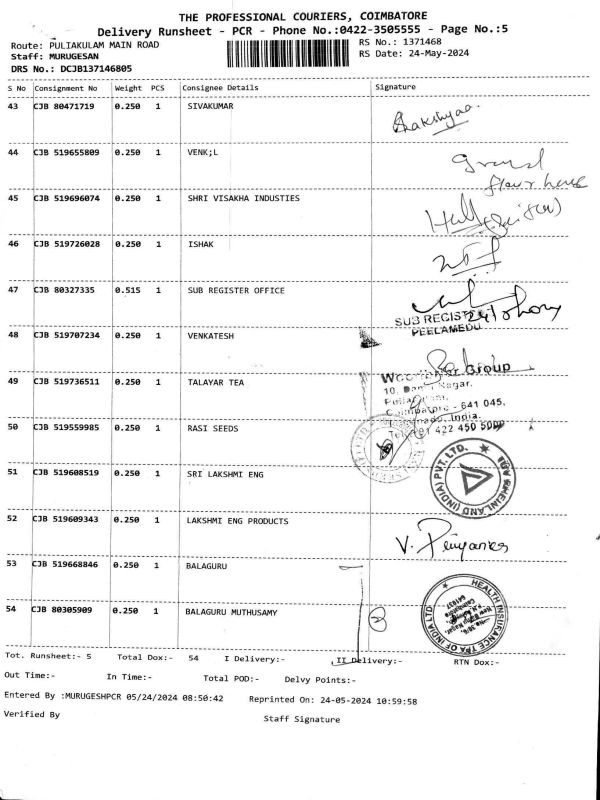 THE PROFESSIONAL COURIERS, COIMBATORE
Delivery Runsheet - PCR - Phone No.:0422-3505555 - Page No.:5
Route: PULIAKULAM MAIN ROAD
RS No.: 1371468
Staff: MURUGESAN
RS Date: 24-May-2024
DRS No.: DCJB137146805
S No Consignment No Weight PCS Consignee Details Signature
43 CJB 80471719 0.250 1 SIVAKUMAR
44 CJB 519655809 0.250 1 VENK;L
Ground
floor house
45 CJB 519696074 0.250 1 SHRI VISAKHA INDUSTIES
46 CJB 519726028 0.250 1 ISHAK
47 CJB 80327335 0.515 1 SUB REGISTER OFFICE
SUB REGISTE
PEELAMEDU
48 CJB 519707234 0.250 1 VENKATESH
Group
49 CJB 519736511 0.250 1 TALAYAR TEA
10, Nagar,
Coimbatore - 641 045,
India.
422 450 5000
50 CJB 519559985 0.250 1 RASI SEEDS
51 CJB 519608519 0.250 1 SRI LAKSHMI ENG
(INDIA) PVT. LTD.
52 CJB 519609343 0.250 1 LAKSHMI ENG PRODUCTS
V. Priyanka
53 CJB 519668846 0.250 1 BALAGURU
54 CJB 80305909 0.250 1 BALAGURU MUTHUSAMY
HEALTH INSURANCE TPA OF INDIA LTD.
Tot. Runsheet:- 5 Total Dox:- 54 I Delivery:- II Delivery:- RTN Dox:-
Out Time:- In Time:- Total POD:- Delvy Points:-
Entered By :MURUGESHPCR 05/24/2024 08:50:42 Reprinted On: 24-05-2024 10:59:58
Verified By
Staff Signature